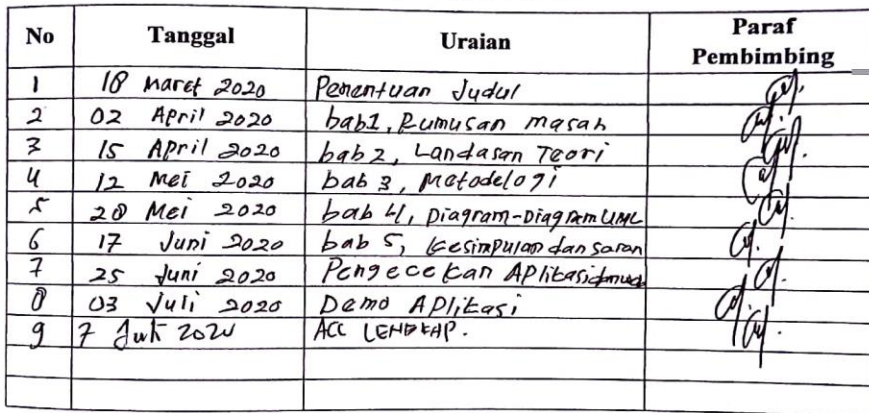 No Tanggal Uraian Paraf Pembimbing
1 18 Maret 2020 Penentuan Judul
2 02 April 2020 bab1, Rumusan masah
3 15 April 2020 bab 2, Landasan Teori
4 12 Mei 2020 bab 3, Metodelogi
5 28 Mei 2020 bab 4, Diagram-Diagram UML
6 17 Juni 2020 bab 5, Kesimpulan dan saran
7 25 Juni 2020 Pengecekan Aplikasi
8 03 Juli 2020 Demo Aplikasi
9 7 Juli 2020 ACC LENGKAP.